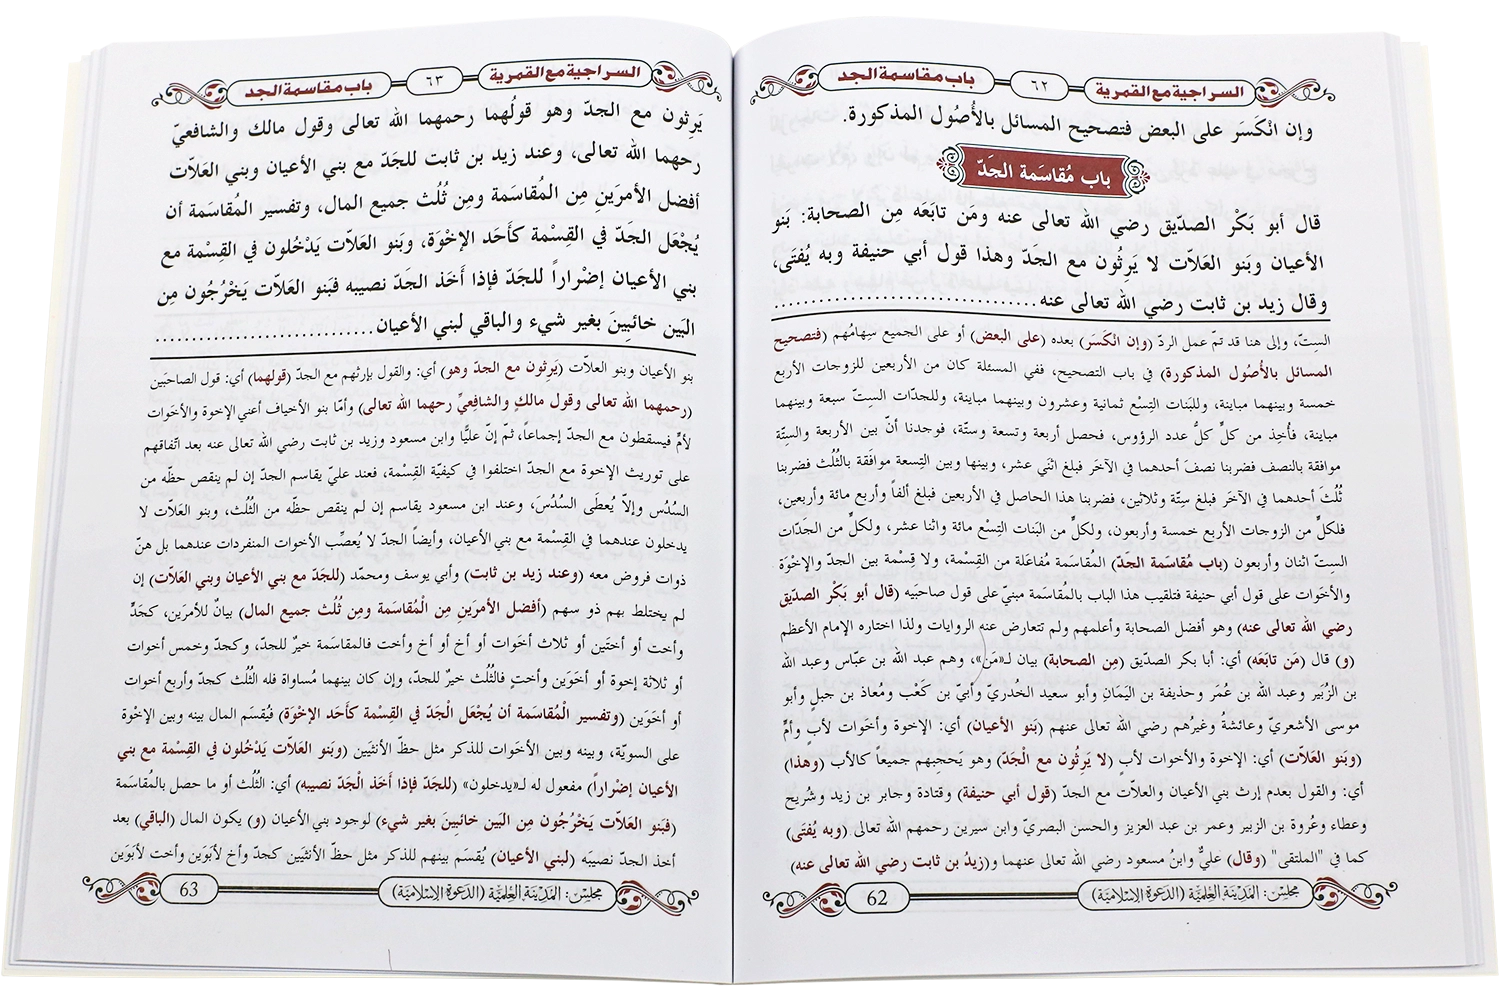 السراجية مع القمرية
٦٢
باب مقاسمة الجد
وإن انْكَسَر على البعض فتصحيح المسائل بالأُصُول المذكورة.
باب مُقاسَمة الجَدّ
قال أبو بَكْر الصدّيق رضي الله تعالى عنه ومَن تابَعَه مِن الصحابة: بَنو
الأعيان وبَنو العَلاّت لا يَرِثُون مع الجَدّ وهذا قول أبي حنيفة وبه يُفتَى،
وقال زيد بن ثابت رضي الله تعالى عنه .................................
الستّ، وإلى هنا قد تمّ عمل الردّ (وإن انْكَسَر) بعده (على البعض) أو على الجميع سِهامُهم (فتصحيح
المسائل بالأُصُول المذكورة) في باب التصحيح، ففي المسئلة كان من الأربعين للزوجات الأربع
خمسة وبينهما مباينة، وللبَنات التِسْع ثمانية وعشرون وبينهما مباينة، وللجدّات الستّ سبعة وبينهما
مباينة، فأُخِذ من كلٍّ كلُّ عدد الرؤوس، فحصل أربعة وتسعة وستّة، فوجدنا أنّ بين الأربعة والستّة
موافقة بالنصف فضربنا نصفَ أحدهما في الآخَر فبلغ اثنَي عشر، وبينها وبين التِسعة موافَقة بالثُلُث فضربنا
ثُلُثَ أحدهما في الآخَر فبلغ ستّة وثلاثين، فضربنا هذا الحاصل في الأربعين فبلغ ألفاً وأربع مائة وأربعين،
فلكلٍّ من الزوجات الأربع خمسة وأربعون، ولكلٍّ من البَنات التِسْع مائة واثنا عشر، ولكلٍّ من الجَدّات
الستّ اثنان وأربعون (باب مُقاسَمة الجَدّ) المُقاسَمة مُفاعَلة من القِسْمة، ولا قِسْمة بين الجدّ والإخْوَة
والأخَوات على قول أبي حنيفة فتلقيب هذا الباب بالمُقاسمة مبنيّ على قول صاحبَيه (قال أبو بَكْر الصدّيق
رضي الله تعالى عنه) وهو أفضل الصحابة وأعلمهم ولم تتعارض عنه الروايات ولذا اختاره الإمام الأعظم
(و) قال (مَن تابَعَه) أي: أبا بكر الصدّيق (مِن الصحابة) بيان لـ«مَن»، وهم عبد الله بن عبّاس وعبد الله
بن الزُبَير وعبد الله بن عُمَر وحذيفة بن اليَمَان وأبو سعيد الخُدريّ وأبيّ بن كَعْب ومُعاذ بن جبلٍ وأبو
موسى الأشعريّ وعائشةُ وغيرُهم رضي الله تعالى عنهم (بَنو الأعيان) أي: الإخوة والأخوات لأبٍ وأمٍّ
(وبَنو العَلاّت) أي: الإخوة والأخوات لأبٍ (لا يَرِثُون مع الجَدّ) وهو يَحجبهم جميعاً كالأب (وهذا)
أي: والقول بعدم إرث بني الأعيان والعلاّت مع الجدّ (قول أبي حنيفة) وقتادة وجابر بن زيد وشُريح
وعطاء وعُروة بن الزبير وعمر بن عبد العزيز والحسن البصريّ وابن سيرين رحمهم الله تعالى (وبه يُفتَى)
كما في "الملتقى" (وقال) عليٌّ وابنُ مسعود رضي الله تعالى عنهما و(زيدُ بن ثابت رضي الله تعالى عنه)
مجلس: المدينة العلمية (الدعوة الإسلامية)
62
السراجية مع القمرية
٦٣
باب مقاسمة الجد
يَرِثون مع الجدّ وهو قولُهما رحمهما الله تعالى وقول مالك والشافعيّ
رحهما الله تعالى، وعند زيد بن ثابت للجَدّ مع بني الأعيان وبني العَلاّت
أفضل الأمرَينِ مِن المُقاسَمة ومِن ثُلُث جميع المال، وتفسير المُقاسَمة أن
يُجْعَل الجَدّ في القِسْمة كأَحَد الإخْوَة، وبَنو العَلاّت يَدْخُلون في القِسْمة مع
بني الأعيان إضْراراً للجَدّ فإذا أَخَذ الجَدّ نصيبه فبَنو العَلاّت يَخْرُجُون مِن
البَين خائبِينَ بغير شيء والباقي لبني الأعيان...............................
بنو الأعيان وبنو العلاّت (يَرثون مع الجدّ وهو) أي: والقول بإرثهم مع الجدّ (قولهما) أي: قول الصاحبَين
(رحمهما الله تعالى وقول مالكٍ والشافعيِّ رحهما الله تعالى) وأمّا بنو الأخياف أعني الإخوة والأخَوات
لأمٍّ فيسقطون مع الجدّ إجماعاً، ثمّ إنّ عليًّا وابن مسعود وزيد بن ثابت رضي الله تعالى عنه بعد اتّفاقهم
على توريث الإخوة مع الجدّ اختلفوا في كيفيّة القِسْمة، فعند عليّ يقاسم الجدّ إن لم ينقص حظّه من
السُدُس وإلاّ يُعطَى السُدُسَ، وعند ابن مسعود يقاسم إن لم ينقص حظّه من الثُلث، وبنو العَلاّت لا
يدخلون عندهما في القِسْمة مع بني الأعيان، وأيضاً الجدّ لا يُعصِّب الأخوات المنفردات عندهما بل هنّ
ذوات فروض معه (وعند زيد بن ثابت) وأبي يوسف ومحمّد (للجَدّ مع بني الأعيان وبني العَلاّت) إن
لم يختلط بهم ذو سهم (أفضل الأمرَينِ مِن الْمُقاسَمة ومن ثُلُث جميع المال) بيانٌ للأمرَين، كجَدٍّ
وأخت أو أختَين أو ثلاث أخَوات أو أخ أو أخ وأخت فالمقاسَمة خيرٌ للجدّ، وكجدّ وخمس أخوات
أو ثلاثة إخوة أو أخوَين وأختٍ فالثُلُث خيرٌ للجدّ، وإن كان بينهما مُساواة فله الثُلث كجدّ وأربع أخوات
أو أخوَين (وتفسير الْمُقاسَمة أن يُجْعَل الْجَدّ في القِسْمة كأَحَد الإخْوَة) فيُقسَم المال بينه وبين الإخوة
على السويّة، وبينه وبين الأخَوات للذكر مثل حظّ الأنثَيين (وبَنو العَلاّت يَدْخُلون في القِسْمة مع بني
الأعيان إضْراراً) مفعول له لـ«يدخلون» (للجَدّ فإذا أَخَذ الْجَدّ نصيبه) أي: الثُلُث أو ما حصل بالمُقاسَمة
(فبَنو العَلاّت يَخْرُجُون مِن البَين خائبِينَ بغير شيء) لوجود بني الأعيان (و) يكون المال (الباقي) بعد
أخذ الجدّ نصيبَه (لبني الأعيان) يُقسَم بينهم للذكر مثل حظّ الأنثَيين كجدّ وأخ لأبَوَين وأخت لأبَوَين
مجلس: المدينة العلمية (الدعوة الإسلامية)
63